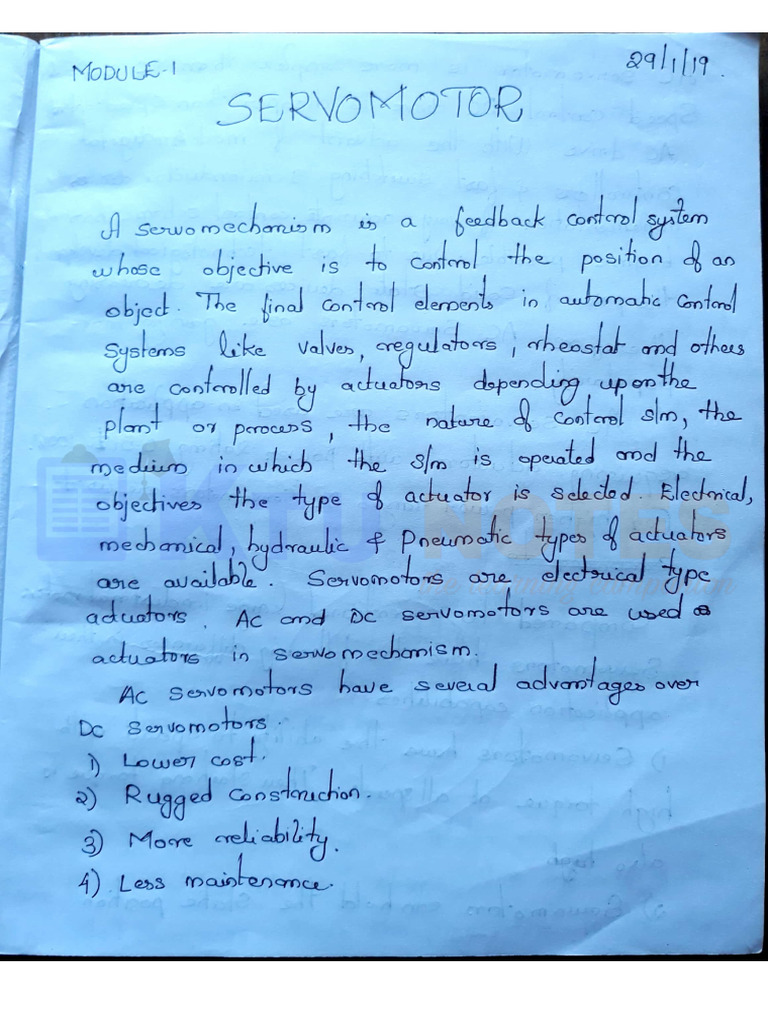 MODULE-1
29/1/19.
SERVOMOTOR
A servomechanism is a feedback control system
whose objective is to control the position of an
object. The final control elements in automatic control
systems like valves, regulators, rheostat and others
are controlled by actuators depending upon the
plant or process, the nature of control s/m, the
medium in which the s/m is operated and the
objectives the type of actuator is selected. Electrical,
mechanical, hydraulic & Pneumatic types of actuators
are available. Servomotors are electrical type
actuators. Ac and Dc servomotors are used as
actuators in servomechanism.
Ac servomotors have several advantages over
Dc servomotors.
1) Lower cost.
2) Rugged construction.
3) More reliability.
4) Less maintenance.
KTU NOTES
the learning companion